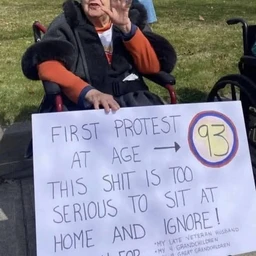 FIRST PROTEST
AT AGE → 93
THIS SHIT IS TOO
SERIOUS TO SIT AT
HOME AND IGNORE!
FOR
*MY LATE VETERAN HUSBAND
*MY 4 GRANDCHILDREN
GREAT GRANDCHILDREN